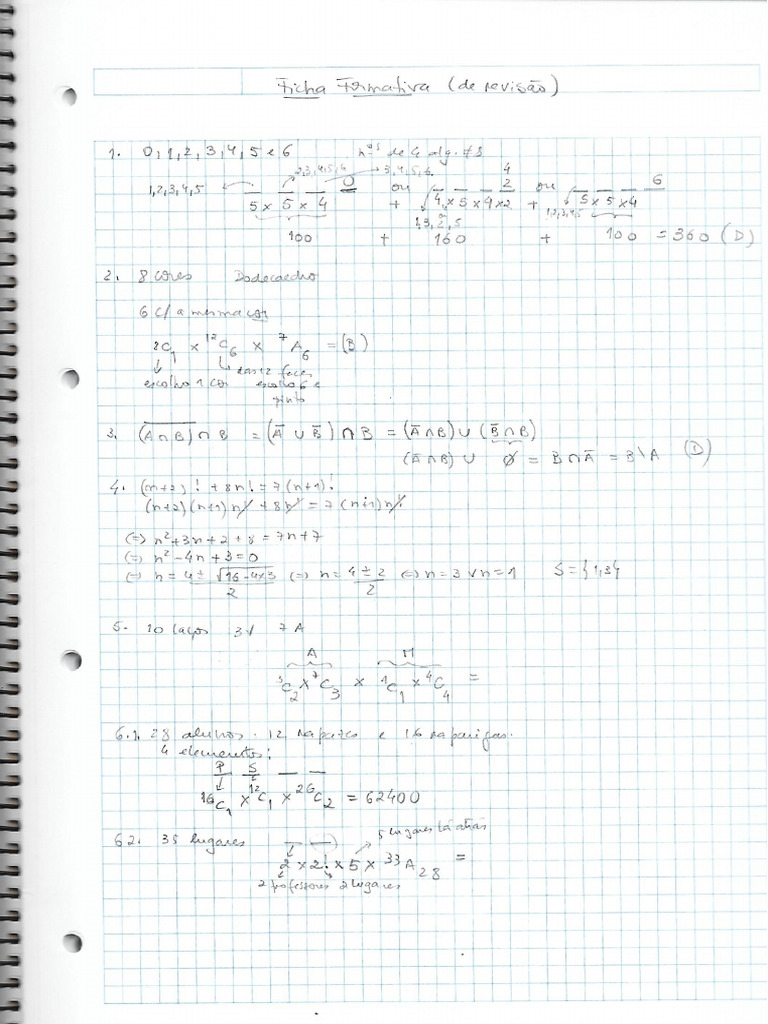 Ficha Formativa (de revisão)
1. 0,1,2,3,4,5 e 6 nºs de 4 alg. ≠s
2,3,4,5,6 3,4,5,6 4
1,2,3,4,5 _ _ _ 0 ou _ _ _ 2 ou _ _ _ 6
5 x 5 x 4 + 4 x 5 x 4 x 2 + 5 x 5 x 4
1,3,2,5 1,2,3,4,5
100 + 160 + 100 = 360 (D)
2. 8 cores Dodecaedro
6 c/ a mesma cor
8C1 x 12C6 x 7A6 = (B)
das 12 faces
escolho 1 cor escolho 6 e
pinto
3. (A∩B)̅ ∩ B = (A̅ ∪ B̅) ∩ B = (A̅∩B) ∪ (B̅∩B)
(A̅∩B) ∪ Ø = B∩A̅ = B\A (D)
4. (n+2)! + 8n! = 7(n+1)!
(n+2)(n+1)n! + 8n! = 7(n+1)n!
(=) n²+3n+2+8 = 7n+7
(=) n²-4n+3=0
(=) n = 4 ± √16-4x3 / 2 (=) n = 4±2 / 2 (=) n=3 ∨ n=1 S={1,3}
5. 10 laços 3V 7A
A M
3C2 x 7C3 x 1C1 x 4C4 =
6.1. 28 alunos. 12 rapazes e 16 raparigas.
4 elementos:
P S _ _
16C1 x 12C1 x 26C2 = 62400
6.2. 35 lugares 5 lugares lá atrás
2 x 2! x 5 x 33A28 =
2 professores 2 lugares